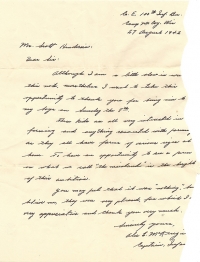 Co. E. 100th Inf. Bn.
Camp McCoy, Wis.
27 August 1942
Mr. Scott
Dear Sir:
Although I am a little slow in
this note, nevertheless I want to take this
opportunity to thank you for being nice to
my boys on Sunday the
These kids are all very interested in
farming and anything connected with farming,
as they all have farms of various sizes at
home. To have an opportunity to see a farm
in what is called "the mainland" is the height
of their ambition.
You may feel that it was nothing, but
believe me, they were very pleased for which I am
very appreciative and thank you very much.
Sincerely yours,
Captain, Infan